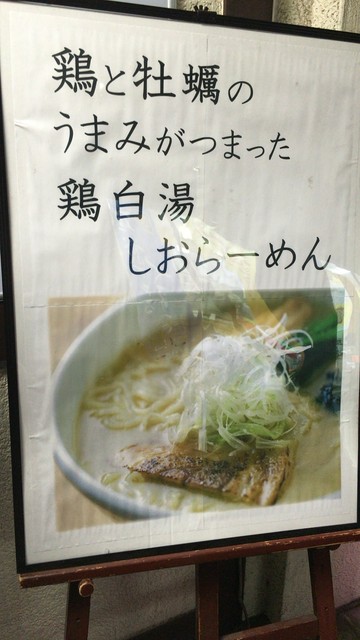 鶏と牡蠣の
うまみがつまった
鶏白湯
しおらーめん